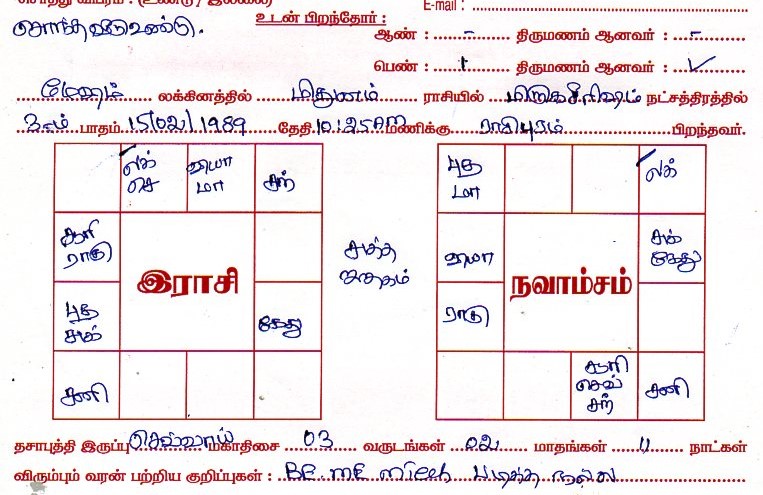 E-mail :
சொந்த வீடு உண்டு.
உடன் பிறந்தோர் :
ஆண் : - திருமணம் ஆனவர் : -
பெண் : 1 திருமணம் ஆனவர் : ✓
மேஷம் லக்கினத்தில் மிதுனம் ராசியில் மிருகசீரிஷம் நட்சத்திரத்தில்
3ம் பாதம் 15/02/1989 தேதி 10:25AM மணிக்கு ராசிபுரம் பிறந்தவர்.
லக் செ
வியா மா
சந்
சூரி ராகு
புத சுக்
சனி
கேது
இராசி
சுத்த ஜாதகம்
புத மா
லக்
வியா
ராகு
சுக் கேது
சூரி செவ் சந்
சனி
நவாம்சம்
தசாபுத்தி இருப்பு செவ்வாய் மகாதிசை 03 வருடங்கள் 02 மாதங்கள் 11 நாட்கள்
விரும்பும் வரன் பற்றிய குறிப்புகள் : BE ME